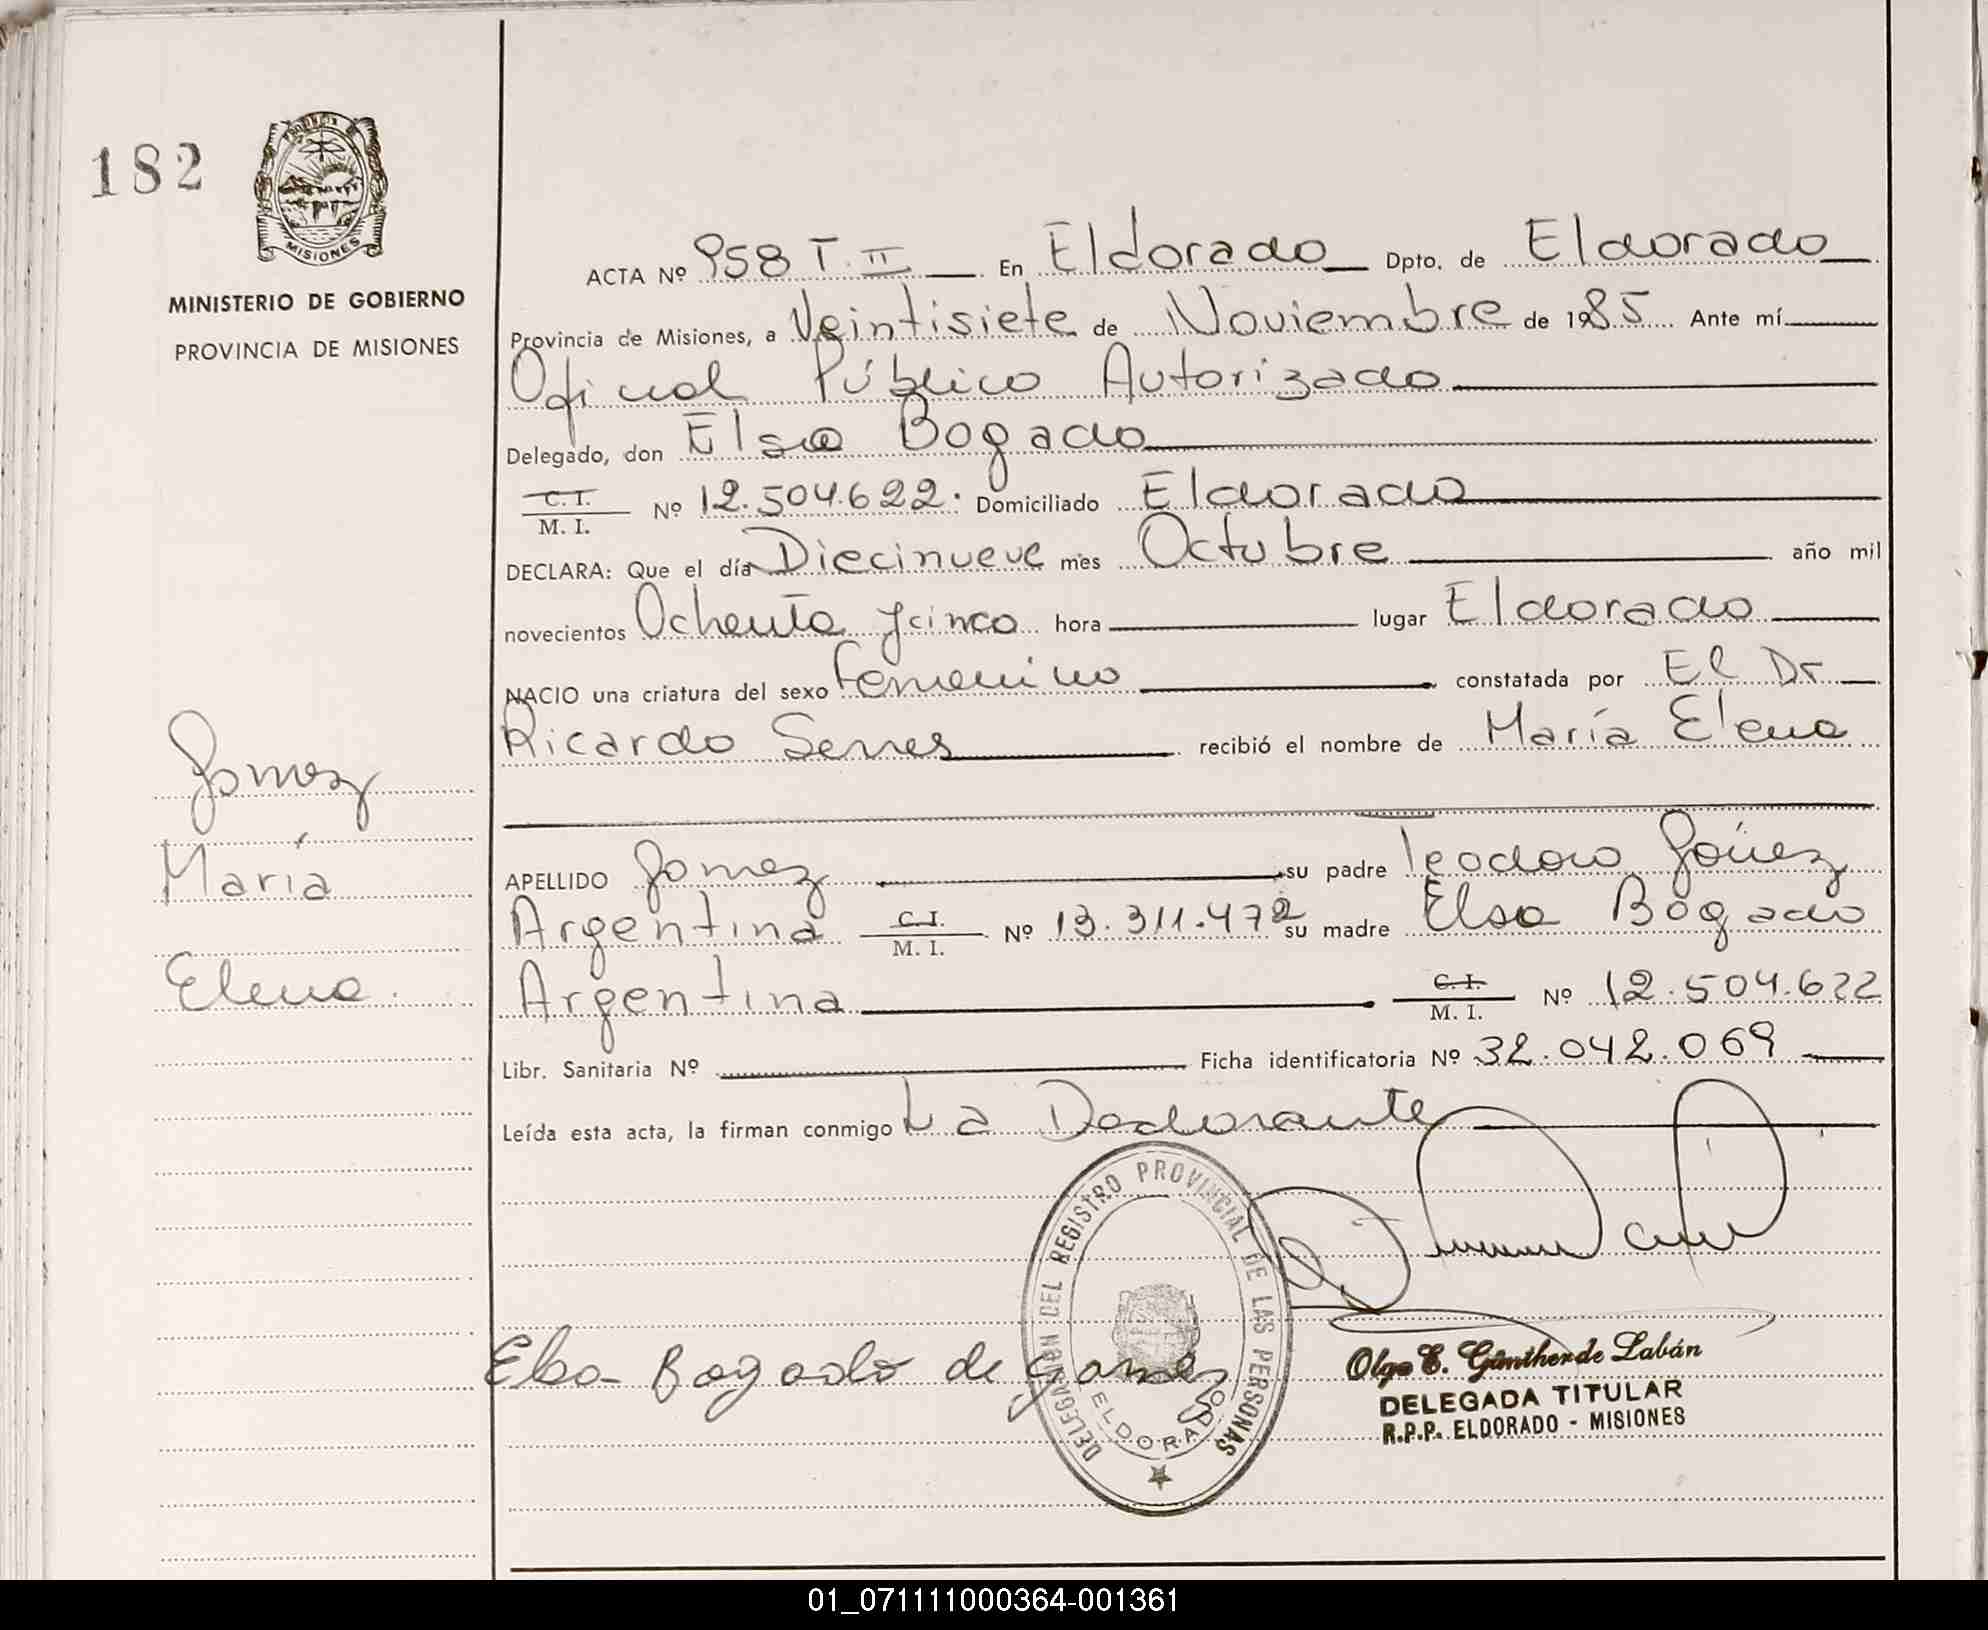 182
PROVINCIA DE
MISIONES
MINISTERIO DE GOBIERNO
PROVINCIA DE MISIONES
Gomez
María
Elena.
ACTA Nº 958 T. II En Eldorado Dpto. de Eldorado
Provincia de Misiones, a Veintisiete de Noviembre de 1985 Ante mí
Oficial Público Autorizado
Delegado, don Elsa Bogado
C. I.
M. I. Nº 12.504.622. Domiciliado Eldorado
DECLARA: Que el día Diecinueve mes Octubre año mil
novecientos Ochenta y cinco hora lugar Eldorado
NACIO una criatura del sexo Femenino constatada por El Dr
Ricardo Serres recibió el nombre de María Elena
APELLIDO Gomez su padre Teodoro Gómez
Argentina C. I. M. I. Nº 13.311.472 su madre Elsa Bogado
Argentina C. I. M. I. Nº 12.504.622
Libr. Sanitaria Nº Ficha identificatoria Nº 32.042.069
Leída esta acta, la firman conmigo La Declarante
DELEGACION DEL REGISTRO PROVINCIAL DE LAS PERSONAS
ELDORADO
Elsa Bogado de Gomez
Olga E. Günther de Labán
DELEGADA TITULAR
R.P.P. ELDORADO - MISIONES
01_071111000364-001361